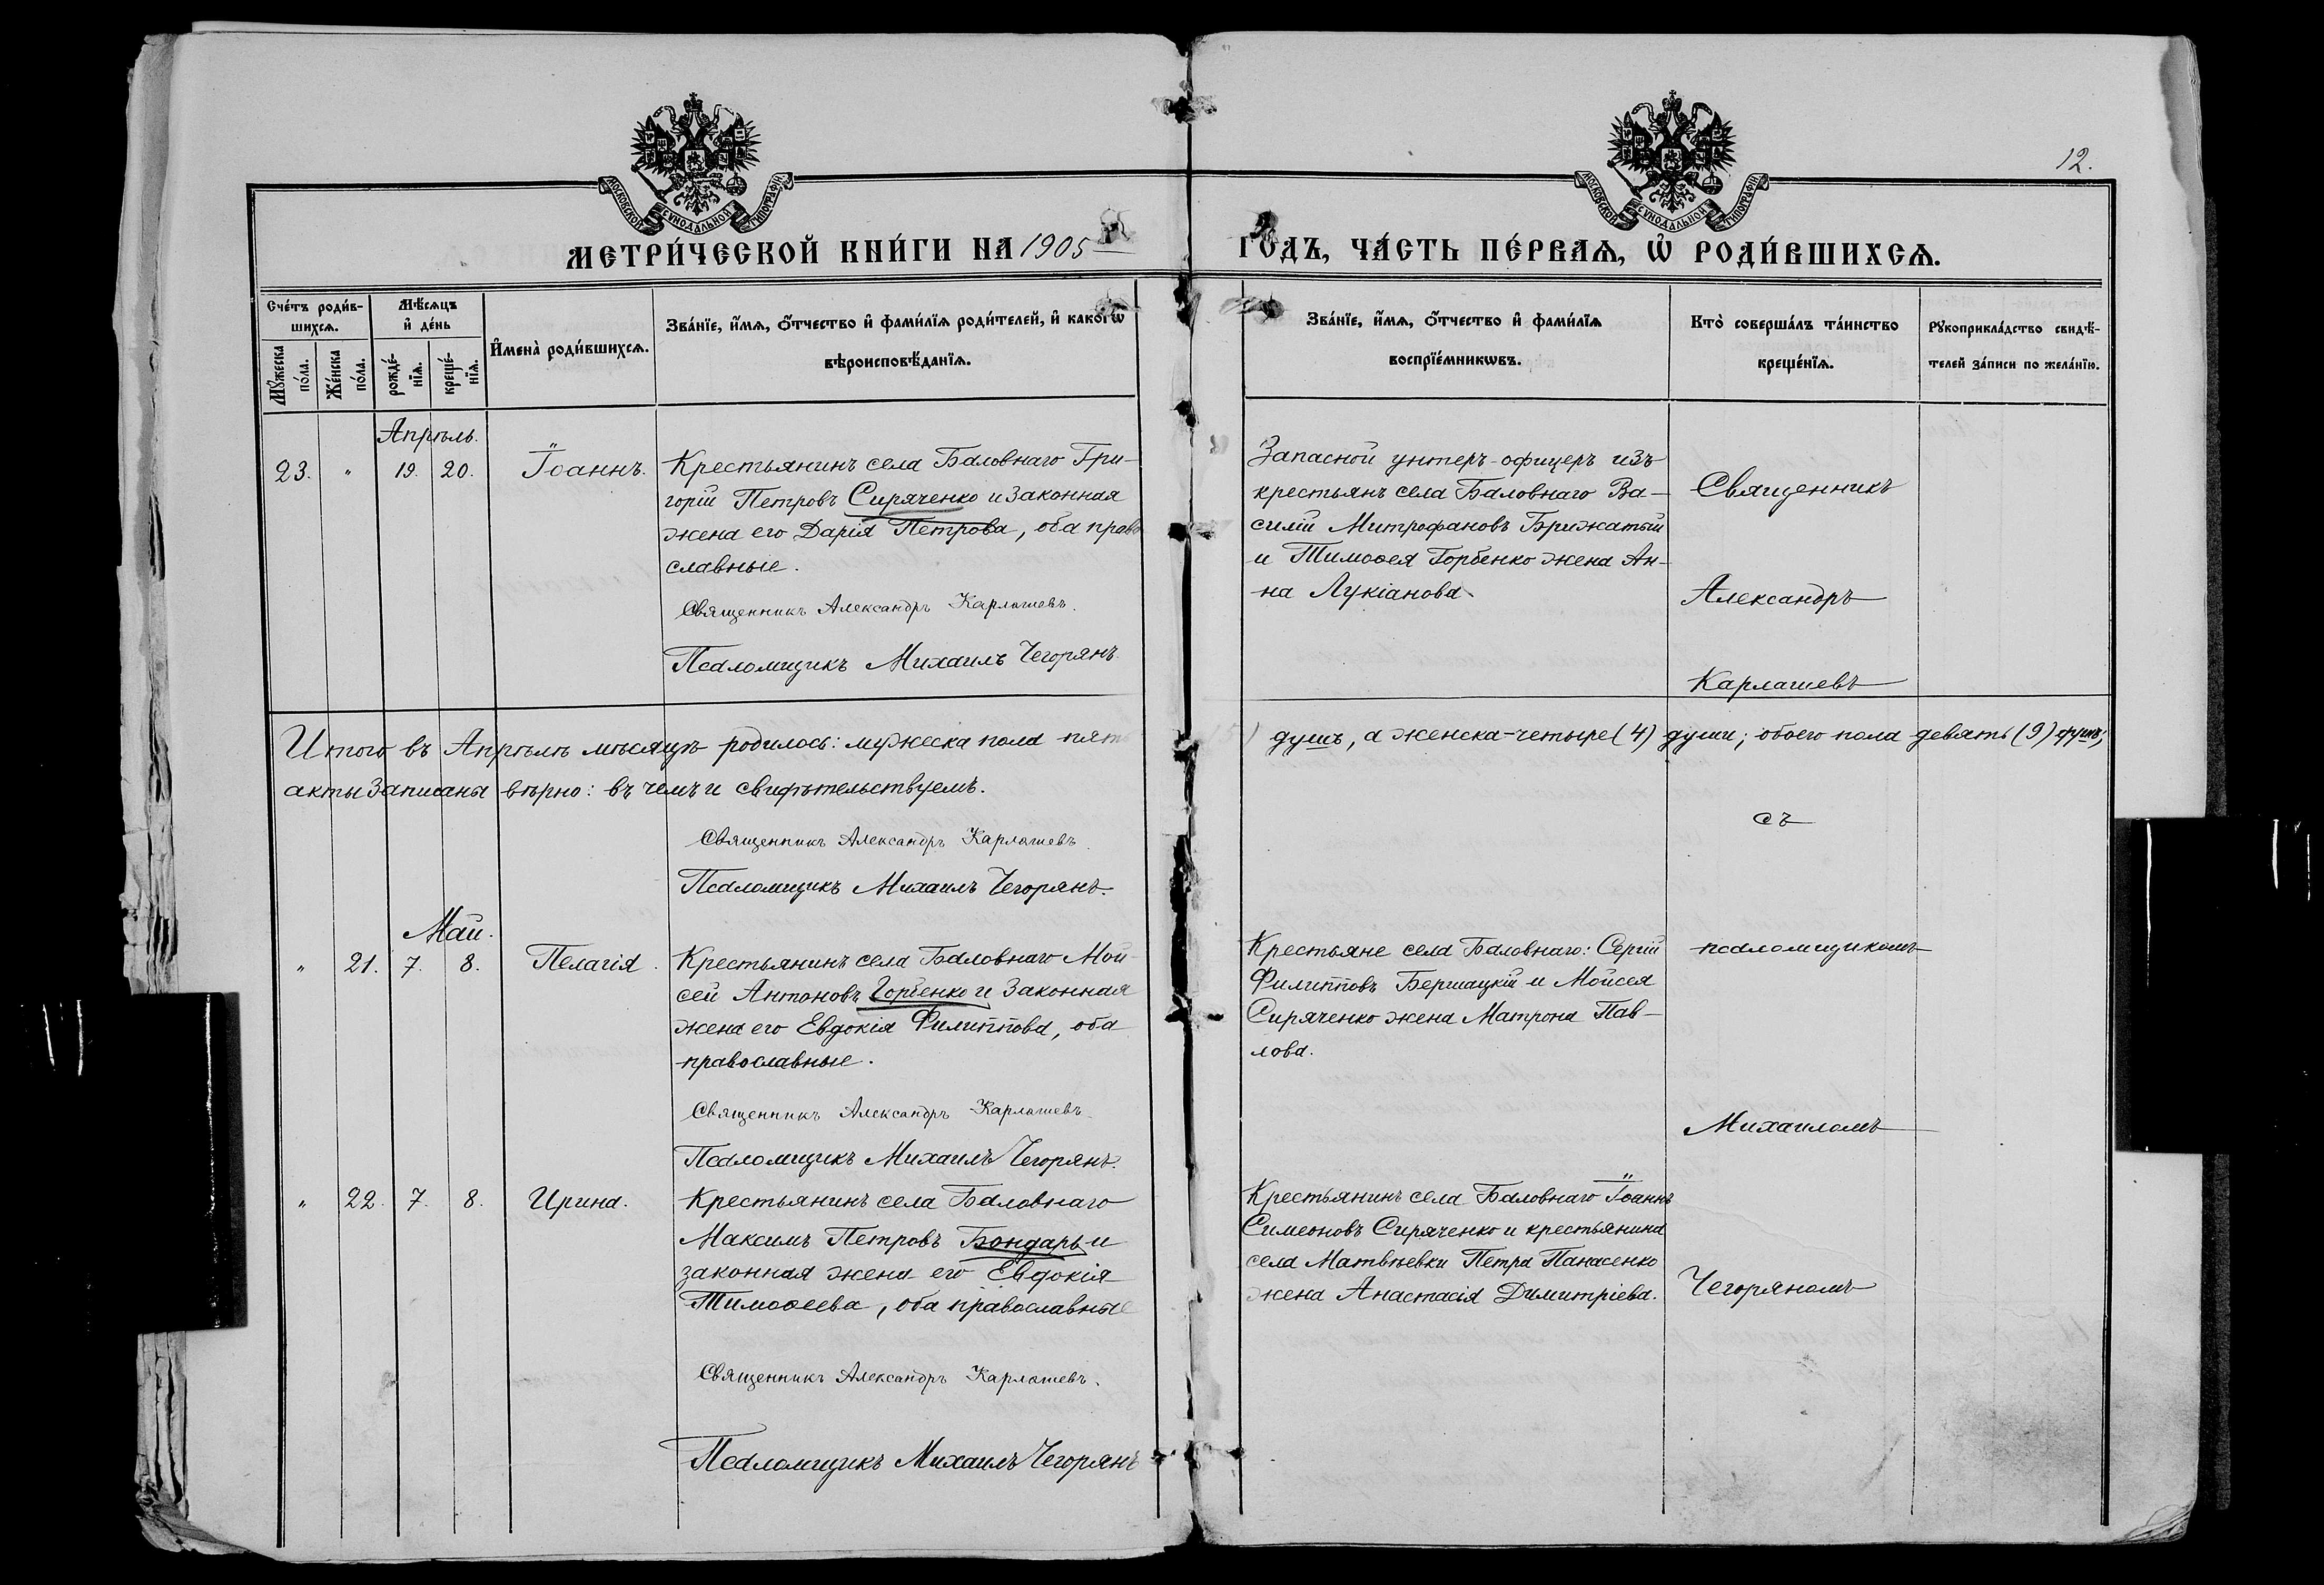 МОСКОВСКОЙ СѴНОДАЛЬНОЙ ТИПОГРАФІИ
МОСКОВСКОЙ СѴНОДАЛЬНОЙ ТИПОГРАФІИ
12.
МЕТРИ́ЧЕСКОЙ КНИ́ГИ НА 1905
ГОДЪ, ЧА́СТЬ ПЕ́РВАѦ, Ѡ҆ РОДИ́ВШИХСѦ.
Сче́тъ роди́в-
шихсѧ.
Мѣ́сѧцъ
и҆ де́нь
Мꙋ́жеска
по́ла.
Же́нска
по́ла.
рожде́-
нїѧ.
креще́-
нїѧ.
И҆мена̀ роди́вшихсѧ.
Зва́нїе, и҆́мѧ, ѻ҆́тчество и҆ фами́лїѧ роди́телей, и҆ како́гѡ
вѣроисповѣ́данїѧ.
Зва́нїе, и҆́мѧ, ѻ҆́тчество и҆ фами́лїѧ
воспрїе́мникѡвъ.
Кто̀ соверша́лъ та́инство
креще́нїѧ.
Рꙋкоприкла́дство свидѣ́-
телей за́писи по жела́нїю.
Апрѣль.
23. " 19. 20. Іоаннъ. Крестьянинъ села Баловнаго Гри-
горій Петровъ Сиряченко и законная
жена его Дарія Петрова, оба право
славные.
Священникъ Александръ Карлашевъ.
Псаломщикъ Михаилъ Чегорянъ.
Запасной унтеръ-офицеръ изъ
крестьянъ села Баловнаго Ва-
силій Митрофановъ Брижатый
и Тимоѳея Горбенко жена Ан-
на Лукіанова
Священникъ
Александръ
Карлашевъ
Итого въ Апрѣлѣ мѣсяцѣ родилось: мужеска пола пять
душъ, а женска-четыре (4) души; обоего пола девять (9) душъ;
акты записаны вѣрно: въ чемъ и свидѣтельствуемъ.
Священникъ Александръ Карлашевъ.
Псаломщикъ Михаилъ Чегорянъ.
съ
Май.
" 21. 7. 8. Пелагія. Крестьянинъ села Баловнаго Мой-
сей Антоновъ Горбенко и законная
жена его Евдокія Филиппова, оба
православные.
Священникъ Александръ Карлашевъ.
Псаломщикъ Михаилъ Чегорянъ.
Крестьяне села Баловнаго: Сергій
Филипповъ Бершацкій и Мойсея
Сиряченко жена Матрона Пав-
лова.
псаломщикомъ
Михаиломъ
" 22. 7. 8. Ирина. Крестьянинъ села Баловнаго
Максимъ Петровъ Бондарь и
законная жена его Евдокія
Тимоѳеева, оба православные
Священникъ Александръ Карлашевъ.
Псаломщикъ Михаилъ Чегорянъ
Крестьянинъ села Баловнаго Іоаннъ
Симеоновъ Сиряченко и крестьянина
села Матвѣевки Петра Панасенко
жена Анастасія Димитріева.
Чегоряномъ